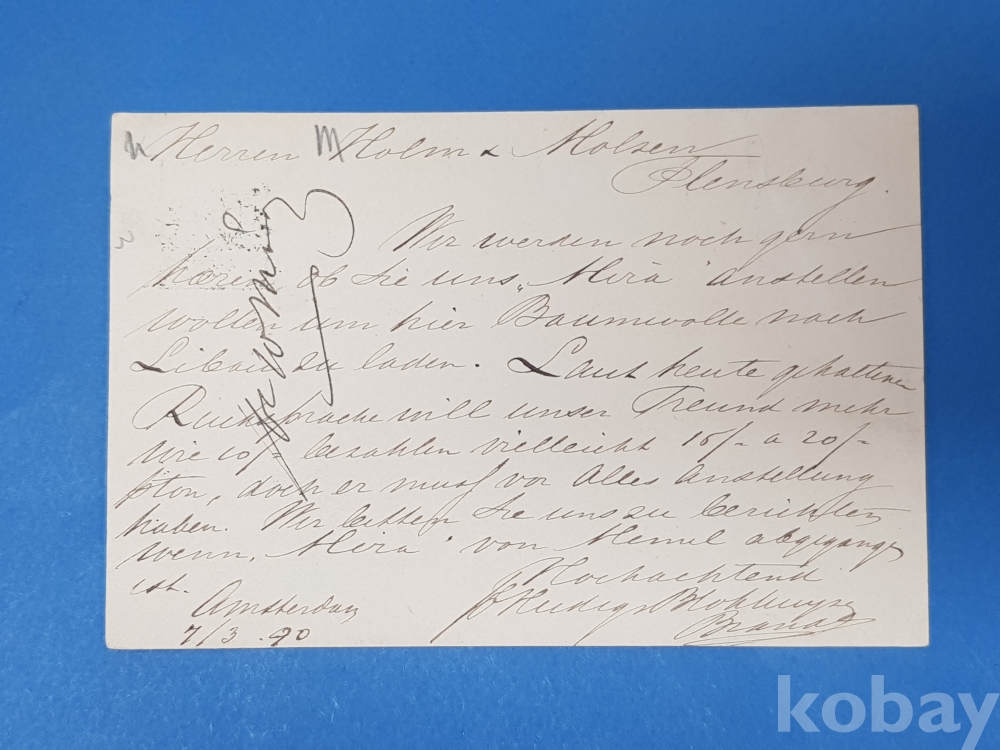 Herren Holm & Molzen
Flensburg.
Wir werden noch gern
hören ob Sie uns „Mira" anstellen
wollen um hier Baumwolle nach
Libau zu laden. Laut heute gehaltener
Rücksprache will unser Freund mehr
wie 10/- bezahlen vielleicht 15/- a 20/-
pton, doch er muss vor Alles Anstellung
haben. Wir bitten Sie uns zu berichten
wenn „Mira" von Memel abgegangen
ist.
Hochachtend
Amsterdam
7/3.90
Hudig Blokhuyzen
kobay